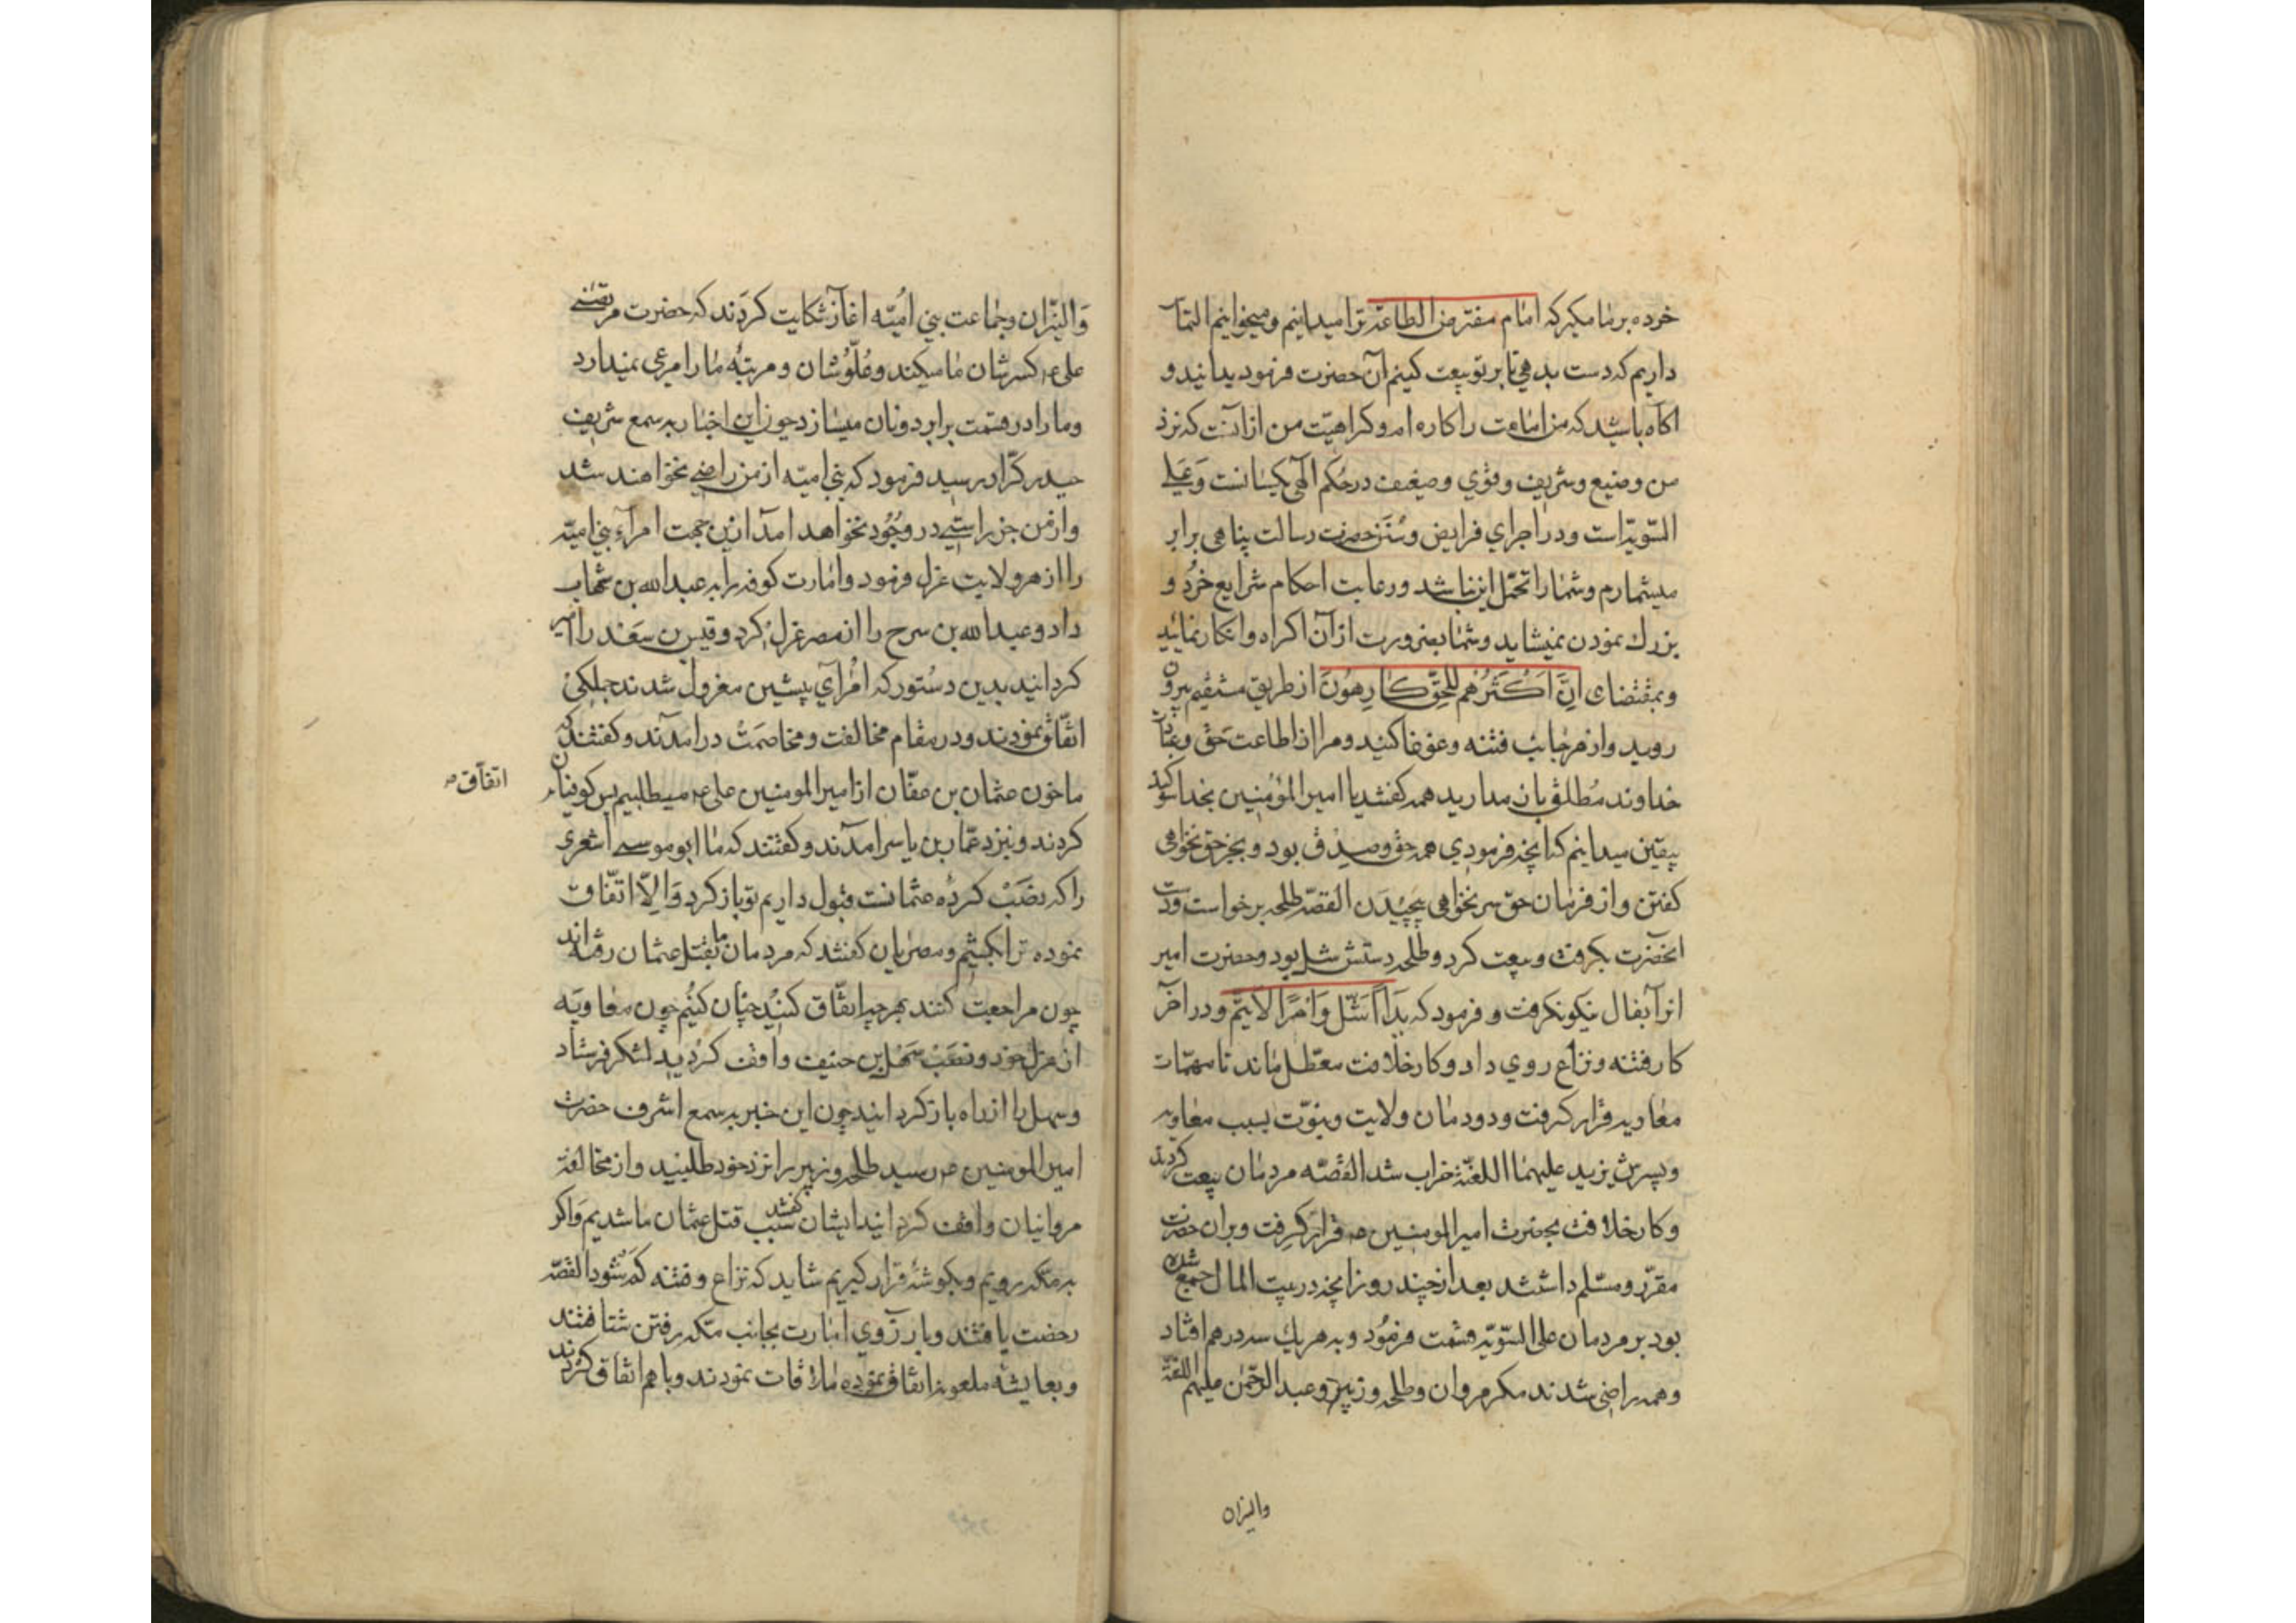 خرده بر ما مگیر که امام مفترض الطاعة ترا میدانیم و میخوانیم التماس
داریم که دست بدهی تا بر تو بیعت کنیم آن حضرت فرمود بدانید و
اکاه باشید که من امامت را کاره ام و کراهیت من از آنست که نزد
من وضیع و شریف و قوی و ضعیف در حکم الهی یکسانست و علی
السّویّه است و در اجرای فرایض و سنن حضرت رسالت پناهی برابر
میشمارم و شما را تحمّل این نباشد و رعایت احکام شرایع خرد و
بزرك نمودن نمیشاید و شما بضرورت از آن اکراه و انکار نمائید
و بمقتضای اِنَّ اَکْثَرُهُم لِلْحَقِّ کَارِهُونَ از طریق مستقیم بیرون
روید و از هر جانب فتنه و غوغا کنید و مرا از اطاعت حق و
خداوند مُطلق باز مدارید همه کفتند یا امیر المؤمنین بخدا سوکند
بیقین میدانیم که انچه فرمودی همه حق و صدق بود و بجز حق نخواهی
کفتن و از فرمان حق سر نخواهی پیچیدن القصّه طلحه برخواست و دست
انحضرت بکرفت و بیعت کرد و طلحه دستش شل بود و حضرت امیر
انرا بفال نیکو نکرفت و فرمود که یدًا اَشَلّ وَ اَمْرًا لاَ یَتِمّ و در آخر
کار فتنه و نزاع روی داد و کار خلافت معطّل ماند تا مهمّات
معاویه قرار کرفت و دودمان ولایت و نبوّت بسبب معاویه
و پسرش یزید علیهما اللعنة خراب شد القصّه مردمان بیعت کردند
و کار خلافت بحضرت امیر المومنین ع قرار کرفت و بران حضرت
مقرّر و مسلّم داشتند بعد از چند روز انچه در بیت المال جمع شده
بود بر مردمان علی السّویّه قسمت فرمُود و به هر یك سه درهم افتاد
و همه راضی شدند مکر مروان و طلحه و زبیر و عبد الرحمن علیهم اللعنة
والیزان
وَالیزان و جماعت بنی اُمیّه اغاز شکایت کردند که حضرت مرتضی
علی ع کسر شان ما میکند و عُلُوّ شان و مرتبهٔ ما را مرعی نمیدارد
و ما را در قسمت برابر دونان میسازد چون این اخبار به سمع شریف
حیدر کرّار رسید فرمود که بنی امیّه از من راضی نخواهند شد
و از من جز راستی در وجُود نخواهد امد ازین جهت امرآء بنی امیّه
را از هر ولایت عزل فرمود و امارت کوفه را به عبد الله بن شهاب
داد و عبد الله بن سرح را از مصر عزل کرد و قیس بن سعد را امیر
کردانید بدین دستور که امرآی پیشین معزول شدند جملکی
اتّفاق نمودند و در مقام مخالفت و مخاصمت درامدند و کفتند که
ما خون عثمان بن عفّان از امیر المومنین علی ع میطلبیم پس کوفیان
اتفاق
کردند و نیزد عمّار بن یاسر امدند و کفتند که ما ابو موسی اشعری
را که نصَبْ کردهٔ عثمانست قبول داریم تو باز کرد وَاِلاّ اتّفاق
نموده ترا بکشیم و مصریان کفتند که مردمان ما بقتل عثمان رفته اند
چون مراجعت کنند بهر چه اتّفاق کنند چنان کنیم چون معاویه
از عزل خود و نصب سَهْل بن حنیف واقف کردید لشکر فرستاد
و سهل را از راه باز کردانید چون این خبر به سمع اشرف حضرت
امیر المومنین ع رسید طلحه و زبیر را نزد خود طلبید و از مخالفت
مروانیان واقف کردانید ایشان کفتند سبب قتل عثمان ما شدیم و اکر
به مکّه رویم و بکوشهٔ قرار کیریم شاید که نزاع و فتنه کم شود القصّه
رخصت یافتند و بارزوی امارت بجانب مکّه رفتن شتافتند
و بعایشه ملعونه اتفاق نموده ملاقات نمودند و با هم اتّفاق کردند